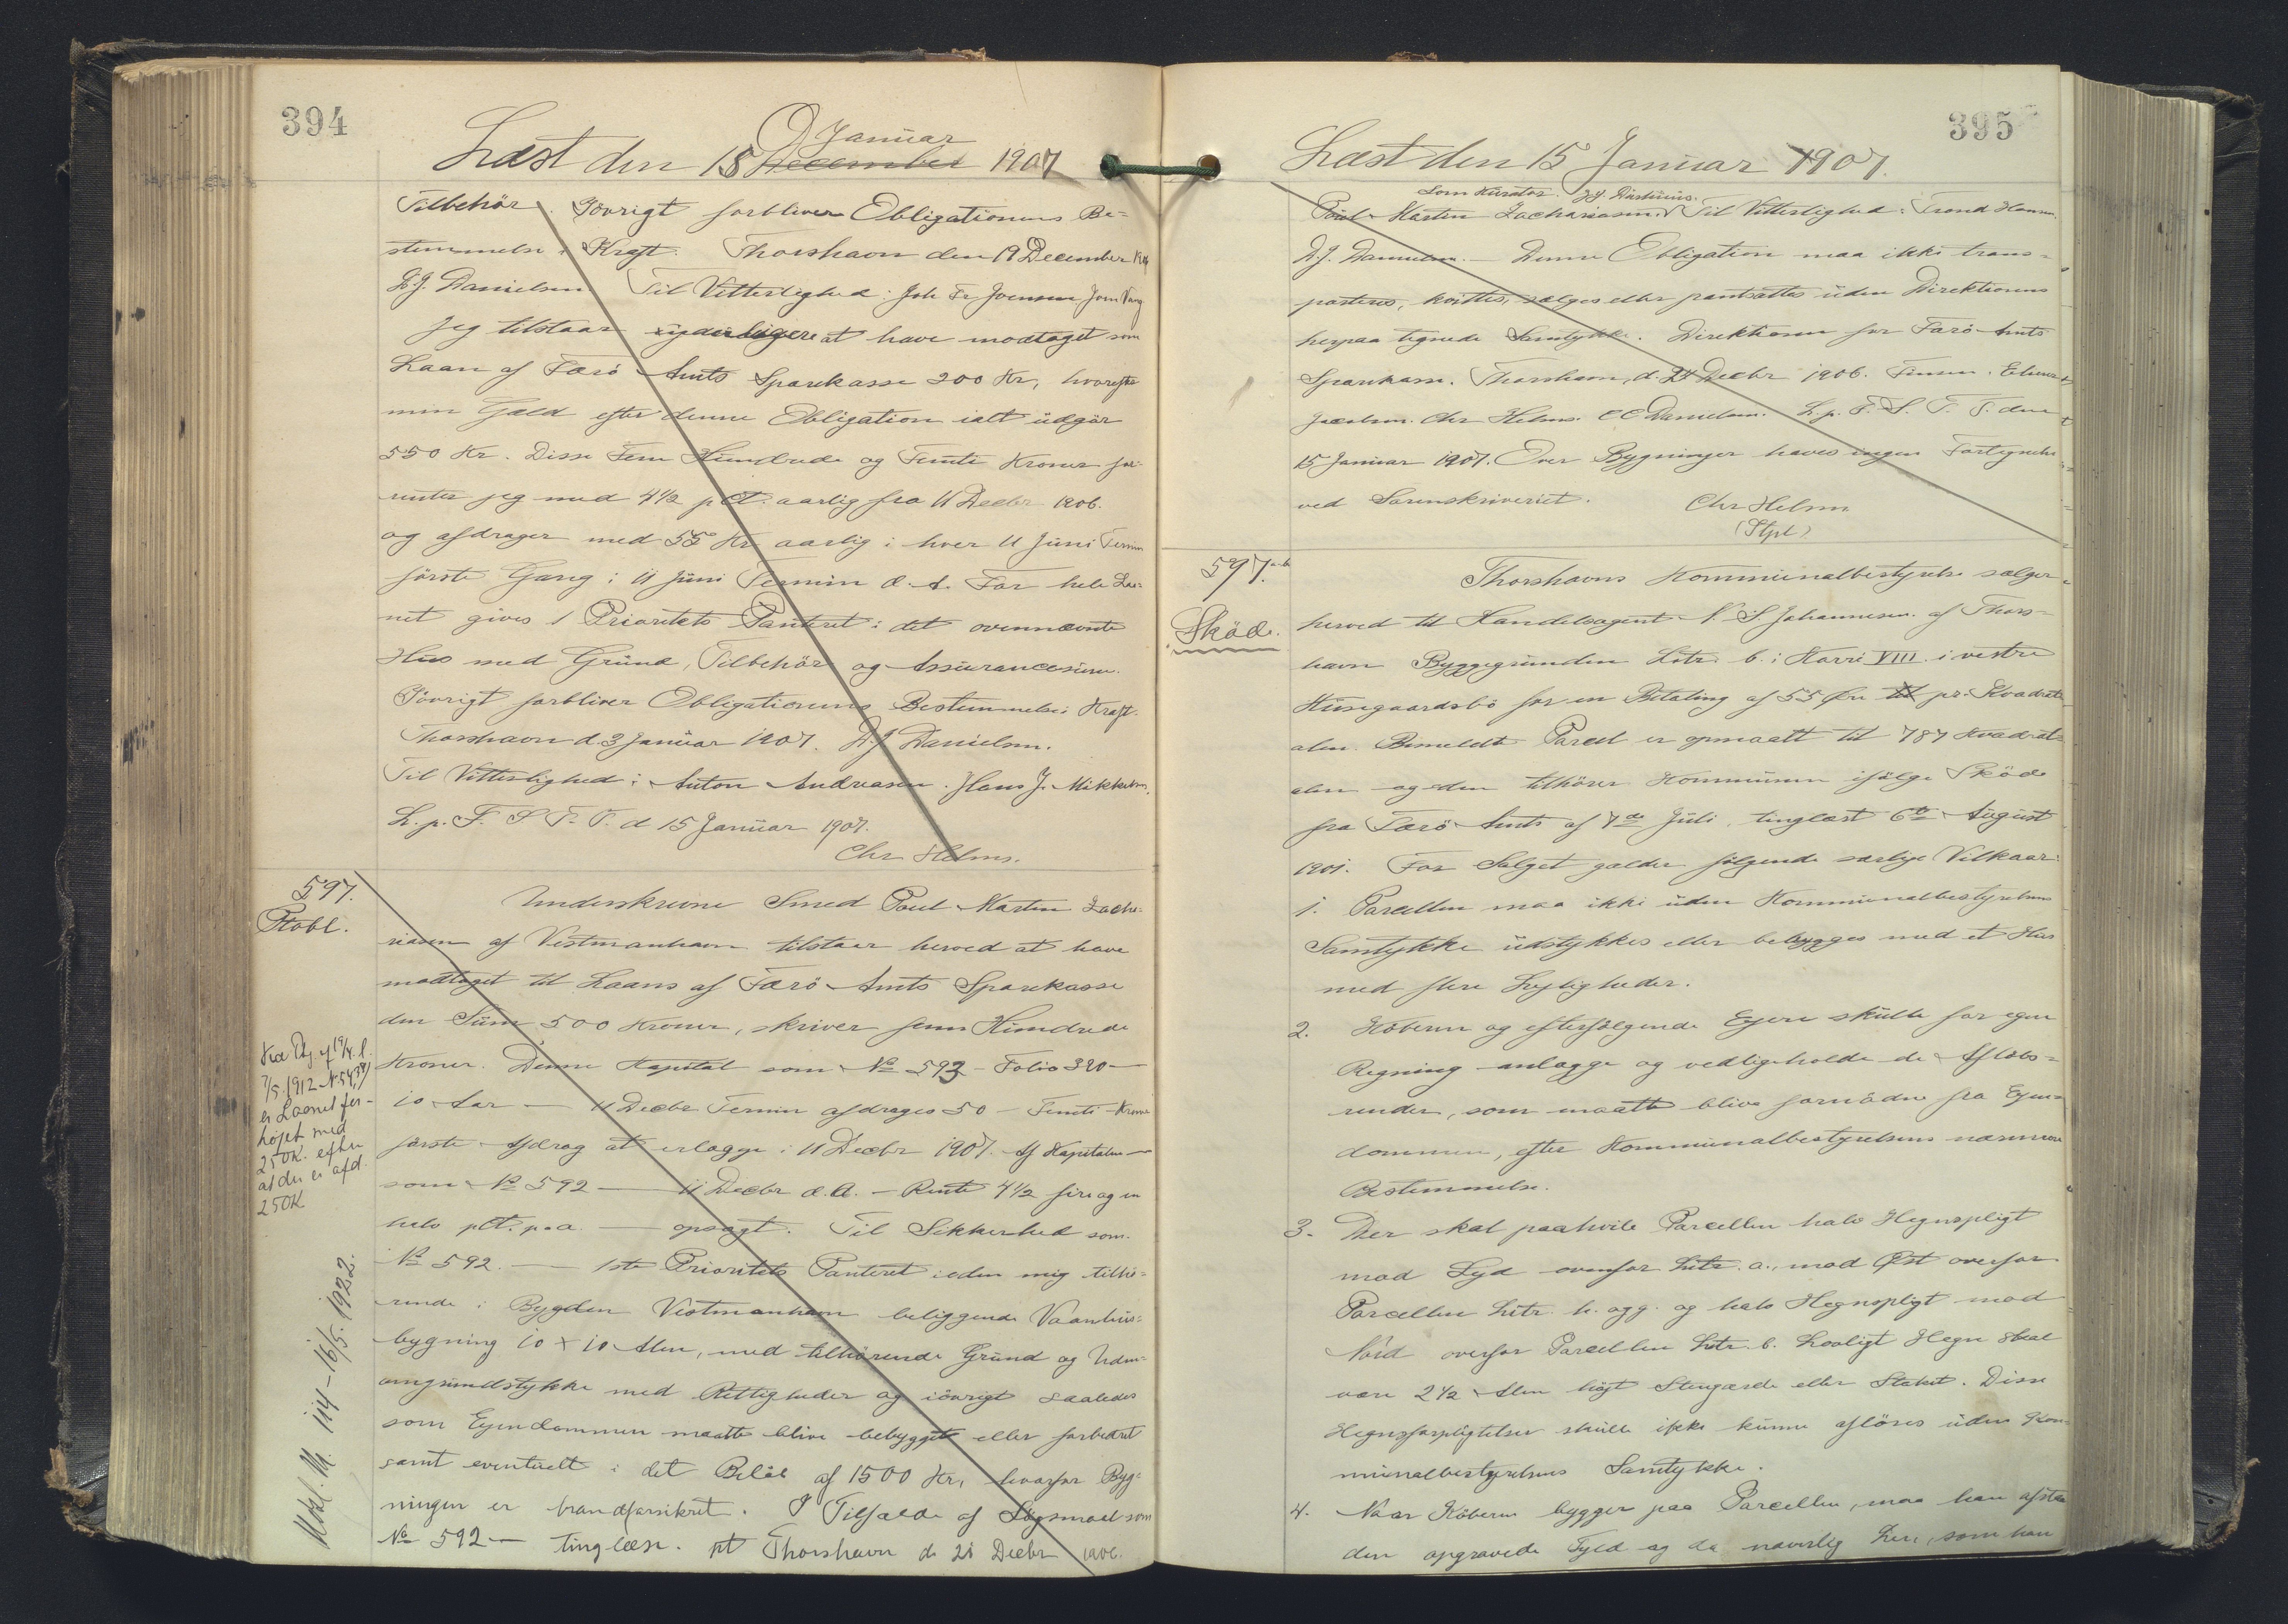 394
Læst den 15 December Januar 1907
Tilbehör. Iövrigt forbliver Obligationens Be=
stemmelse i Kraft. Thorshavn den 19 December 1904
D. J. Danielsen Til Vitterlighed: Joh Fr Joensen Joen Vang
Jeg tilstaar yderligere at have modtaget som
Laan af Færö Amts Sparekasse 200 Kr, hvorefter
min Gæld efter denne Obligation ialt üdgör
550 Kr. Disse Fem Hündrede og Femti Kroner for=
renter jeg med 4½ pCt. aarlig fra 11 Decbr 1906.
og afdrager med 55 Kr aarlig i hver 11 Jüni Termin
förste Gang i 11 Jüni Termin d. A. For hele Laa=
net gives 1 Prioritets Panteret i det ovennævnte
Hüs med Gründ, Tilbehör og Assürancesüm.
Iövrigt forbliver Obligationens Bestemmelse i Kraft.
Thorshavn d. 3 Janüar 1907. D. J Danielsen.
Til Vitterlighed: Anton Andreasen. Hans J. Mikkelsen.
L. p. F. S. T. T. d 15 Janüar 1907.
Chr Helms.
597.
Ptobl.
Underskrevne Smed Poul Martin Zacha=
riasen af Vestmanhavn tilstaar herved at have
modtaget til Laans af Færö Amts Sparekasse
den Süm 500 Kroner, skriver fem Hündrede
Kroner. Denne Kapital som No 593 - Folio 390 —
10 Aar — 11 Decbr Termin afdrages 50 - Femti - Kroner
förste Afdrag at erlægge i 11 Decbr 1907. Af Kapitalen —
som No 592 — 11 Decbr d. A. — Rente 4½ fire og en
halv pCt. p. a. — opsagt. Til Sikkerhed som
No 592. — 1ste Prioritets Panteret i den mig tilhö=
rende i Bygden Vestmanhavn beliggende Vaanhüs=
bygning 10 x 10 Alen, med tilhörende Gründ og Uden=
omgründstykke med Rettigheder og iövrigt saaledes
som Ejendommen maatte blive bebygget eller forbedret
samt eventüelt i det Belöb af 1500 Kr, hvorfor Byg=
ningen er brandforsikret. I Tilfælde af Lögsmaal som
No 592 — tinglæse. pt Thorshavn d. 21 Decbr 1906.
7/5. 1912
er Laanet for=
höjet med
250K. efter
at der er afd.
250K
114 - 16/5. 1922.
395
Læst den 15 Janüar 1907.
som Kürator.
Poul Martin Zachariasen. Til Vitterlighed: Trond Hansen.
D. J. Danielsen. — Denne Obligation maa ikke trans=
porteres, kvittes, sælges eller pantsættes üden Direktionens
herpaa tegnede Samtykke. Direktionen for Færö Amts
Sparekasse. Thorshavn, d. 24 Decbr 1906.
Jacobsen. Chr Helms. C C Danielsen. L. p. F. S. T. T. den
15 Janüar 1907. Over Bygninger haves ingen Fortegnelse
ved Sorenskriveriet.
Chr Helms
(Stpl)
597.a-b
Sköde.
Thorshavns Kommünalbestyrelse sælger
herved til Handelsagent N. S. Johannesen af Thors=
havn Byggegründen Litr. b. i Karré VIII i vestre
Hüsegaardsbö for en Betaling af 55 Öre pr. Kvadrat=
alen. Bemeldte Parcel er opmaalt til 787 Kvadrat=
alen og den tilhörer Kommünen ifölge Sköde
fra Færö Amt af 7de Jüli, tinglæst 6te Aügüst
1901. For Salget gælder fölgende særlige Vilkaar:
1. Parcellen maa ikke üden Kommünalbestyrelsens
Samtykke üdstykkes eller bebygges med et Hüs
med flere Lejligheder.
2. Köberen og efterfölgende Ejere skülle for egen
Regning anlægge og vedligeholde de Aflöbs=
render, som maatte blive fornödne fra Ejen=
dommen, efter Kommünalbestyrelsens nærmere
Bestemmelse.
3. Der skal paahvile Parcellen halv Hegnspligt
mod Syd ovenfor Litr. a., mod Öst overfor
Parcellen Litr. h. og g. og halv Hegnspligt mod
Nord overfor Parcellen Litr. b. Lovligt Hegn skal
være 2½ Alen höjt Stengærde eller Staket. Disse
Hegnsforpligtelser skülle ikke künne aflöses üden Kom=
münalbestyrelsens Samtykke.
4. Naar Köberen bygger paa Parcellen, maa han afstaa
den opgravede Fyld og da navnlig Ler, som han